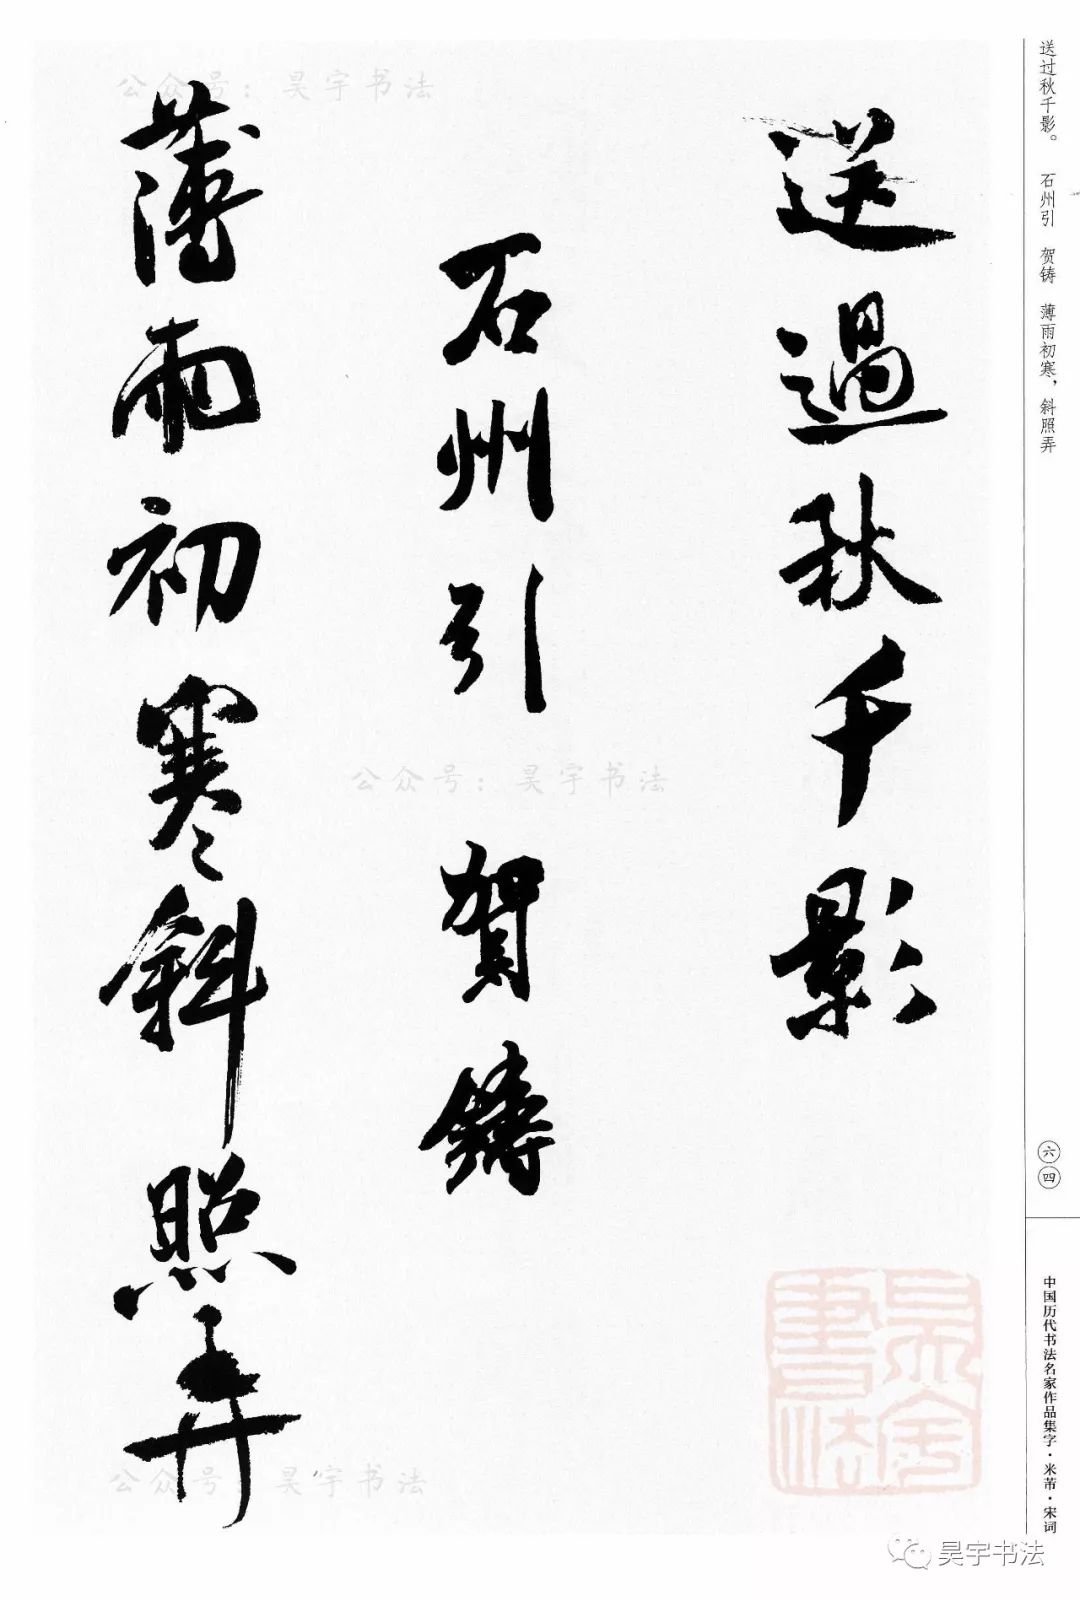 送過秋千影
石州引 賀鑄
薄雨初寒斜照弄
送过秋千影。 石州引 贺铸 薄雨初寒，斜照弄
六四
中国历代书法名家作品集字·米芾·宋词
公众号：昊宇书法
公众号：昊宇书法
公众号：昊宇书法
昊宇書法
昊宇书法